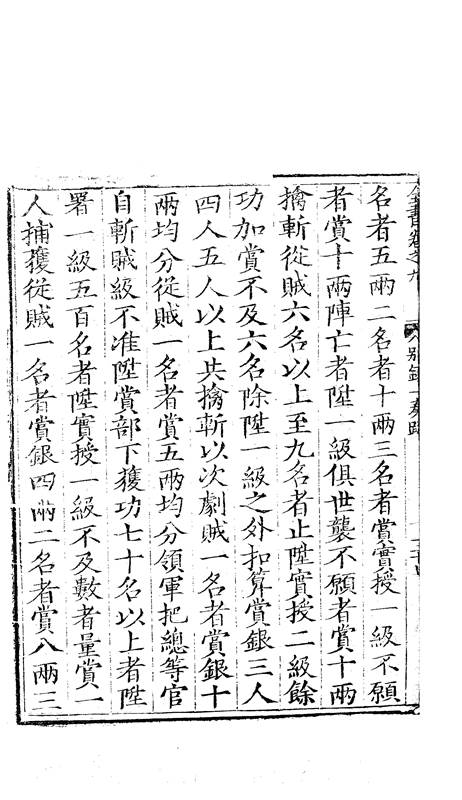 全書卷之九 別錄一 奏疏
名者五兩二名者十兩三名者賞實授一級不願
者賞十兩陣亡者陞一級俱世襲不願者賞十兩
擒斬從賊六名以上至九名者止陞實授二級餘
功加賞不及六名除陞一級之外扣算賞銀三人
四人五人以上共擒斬以次劇賊一名者賞銀十
兩均分從賊一名者賞五兩均分領軍把總等官
自斬賊級不准陞賞部下獲功七十名以上者陞
署一級五百名者陞實授一級不及數者量賞一
人捕獲從賊一名者賞銀四兩二名者賞八兩三